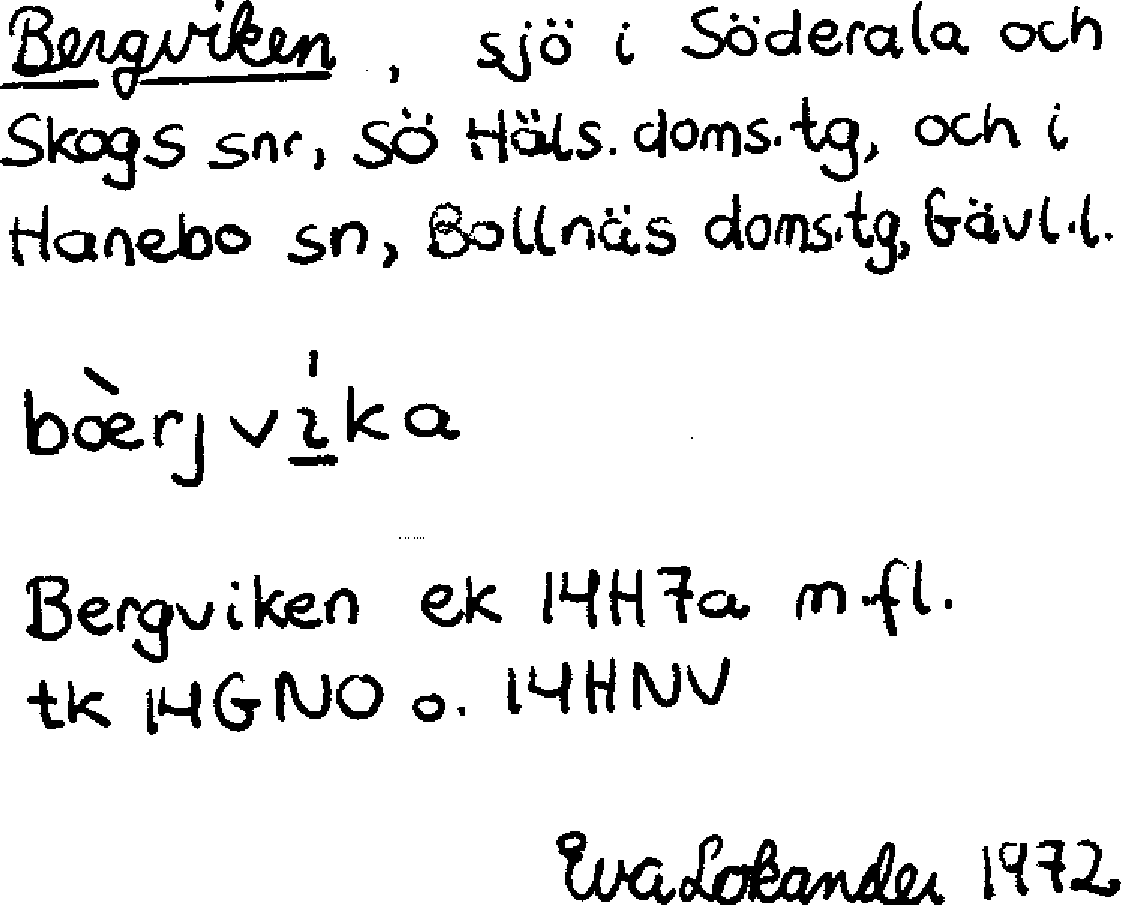 Bergviken, sjö i Söderala och
Skogs snr, Sö Häls. doms.tg, och i
Hanebo sn, Bollnäs doms.tg, Gävl.l.
bœ̀rjvi̱̍ka
Bergviken ek 14H7a m.fl.
tk 14GNO o. 14HNV
Eva Lokander 1972